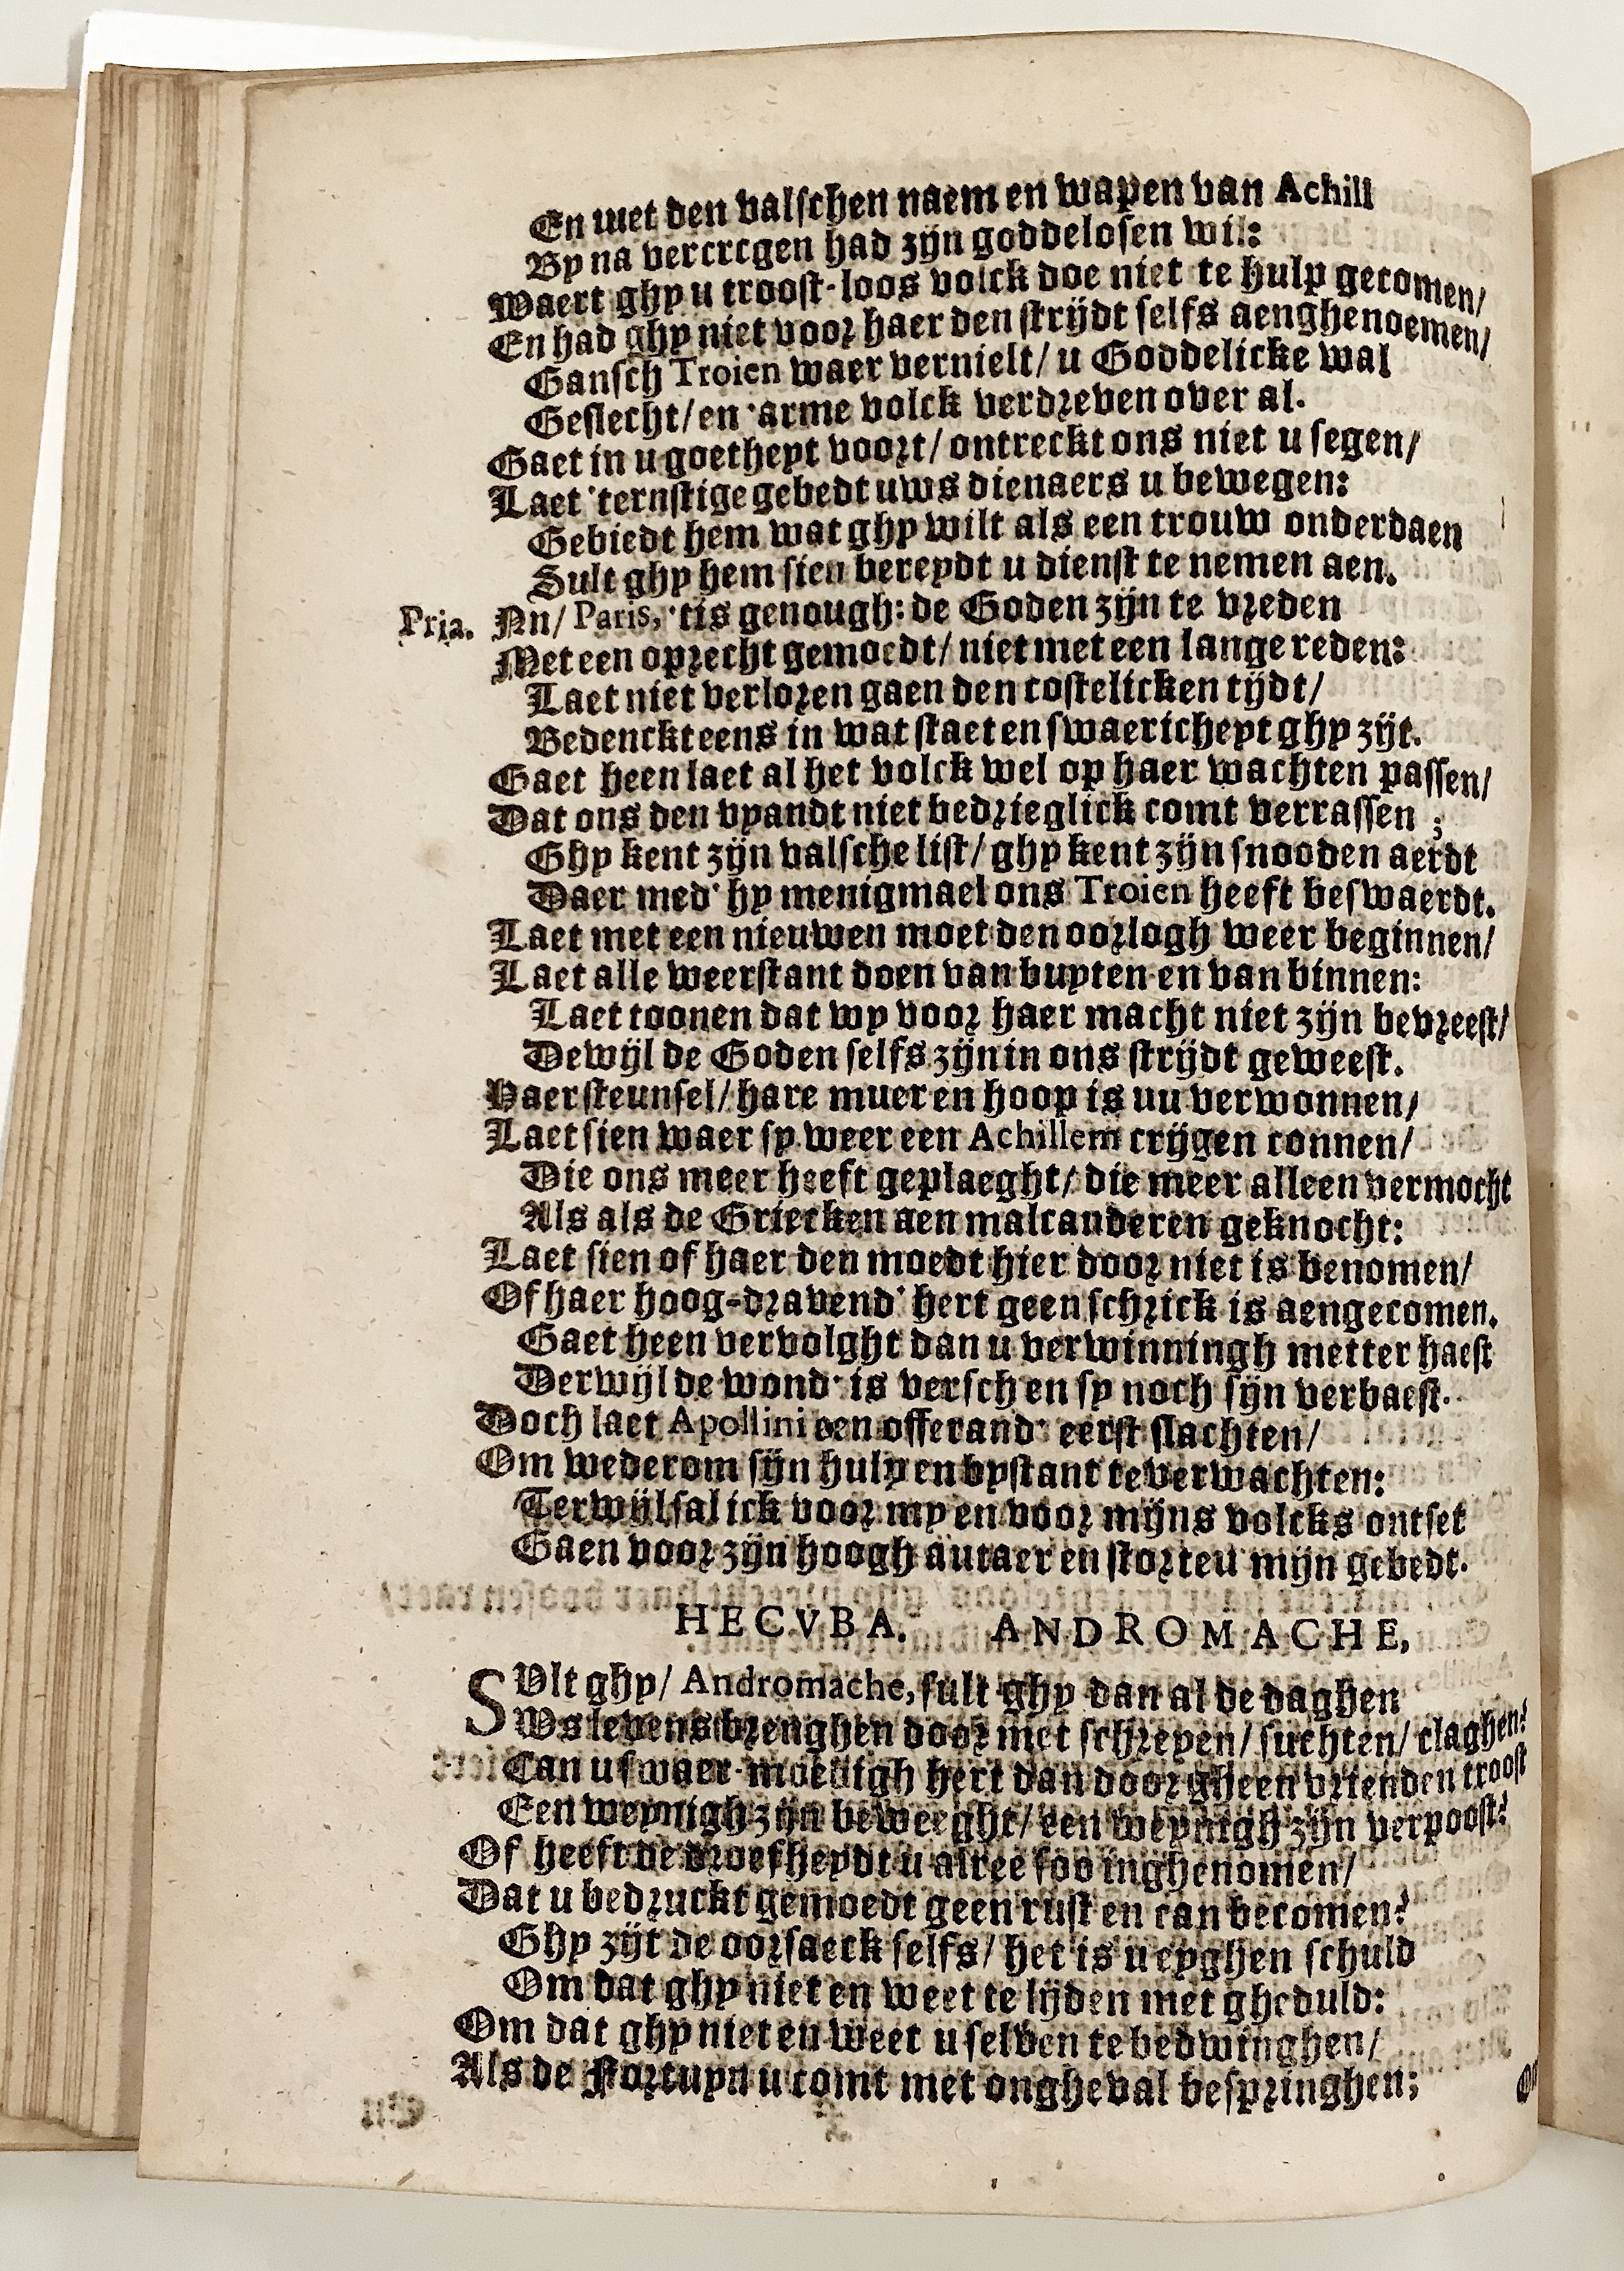 En met den valschen naem en wapen van Achill
By na vercregen had zijn goddelosen wil:
Waert ghy u troost-loos volck doe niet te hulp gecomen/
En had ghy niet voor haer den strijdt selfs aenghenoemen/
Gansch Troien waer vernielt/ u Goddelicke wal
Geslecht/ en 'arme volck verdreven over al.
Gaet in u goetheyt voort/ ontreckt ons niet u segen/
Laet 'ternstige gebedt uws dienaers u bewegen:
Gebiedt hem wat ghy wilt als een trouw onderdaen
Sult ghy hem sien bereydt u dienst te nemen aen.
Pria. Nn/ Paris, 'tis genough: de Goden zijn te vreden
Met een oprecht gemoedt/ niet met een lange reden:
Laet niet verloren gaen den costelicken tijdt/
Bedenckt eens in wat staet en swaericheyt ghy zijt.
Gaet heen laet al het volck wel op haer wachten passen/
Dat ons den vyandt niet bedrieglick comt verrassen ;
Ghy kent zijn valsche list/ ghy kent zijn snooden aerdt
Daer med' hy menigmael ons Troien heeft beswaerdt.
Laet met een nieuwen moet den oorlogh weer beginnen/
Laet alle weerstant doen van buyten en van binnen:
Laet toonen dat wy voor haer macht niet zijn bevreest/
Dewijl de Goden selfs zijn in ons strijdt geweest.
Haer steunsel/ hare muer en hoop is uu verwonnen/
Laet sien waer sy weer een Achillem crijgen connen/
Die ons meer heeft geplaeght/ die meer alleen vermocht
Als als de Griecken aen malcanderen geknocht:
Laet sien of haer den moedt hier door niet is benomen/
Of haer hoog-dravend' hert geen schrick is aengecomen.
Gaet heen vervolght dan u verwinningh metter haest
Derwijl de wond' is versch en sy noch sijn verbaest.
Doch laet Apollini een offerand' eerst slachten/
Om wederom sijn hulp en bystant te verwachten:
Terwijl sal ick voor my en voor mijns volcks ontset
Gaen voor zijn hoogh autaer en storten mijn gebedt.
HECVBA. ANDROMACHE,
SVlt ghy/ Andromache, sult ghy dan al de daghen
Ws levens brenghen door met schreyen/ suchten/ claghen?
Can u swaer-moedigh hert dan door gheen vrienden troost
Een weynigh zijn beweeght/ een weynigh zijn verpoost?
Of heeft de droefheydt u alree soo inghenomen/
Dat u bedruckt gemoedt geen rust en can becomen?
Ghy zijt de oorsaeck selfs/ het is u eyghen schuld
Om dat ghy niet en weet te lijden met gheduld:
Om dat ghy niet en weet u selven te bedwinghen/
Als de Fortuyn u comt met ongheval bespringhen;